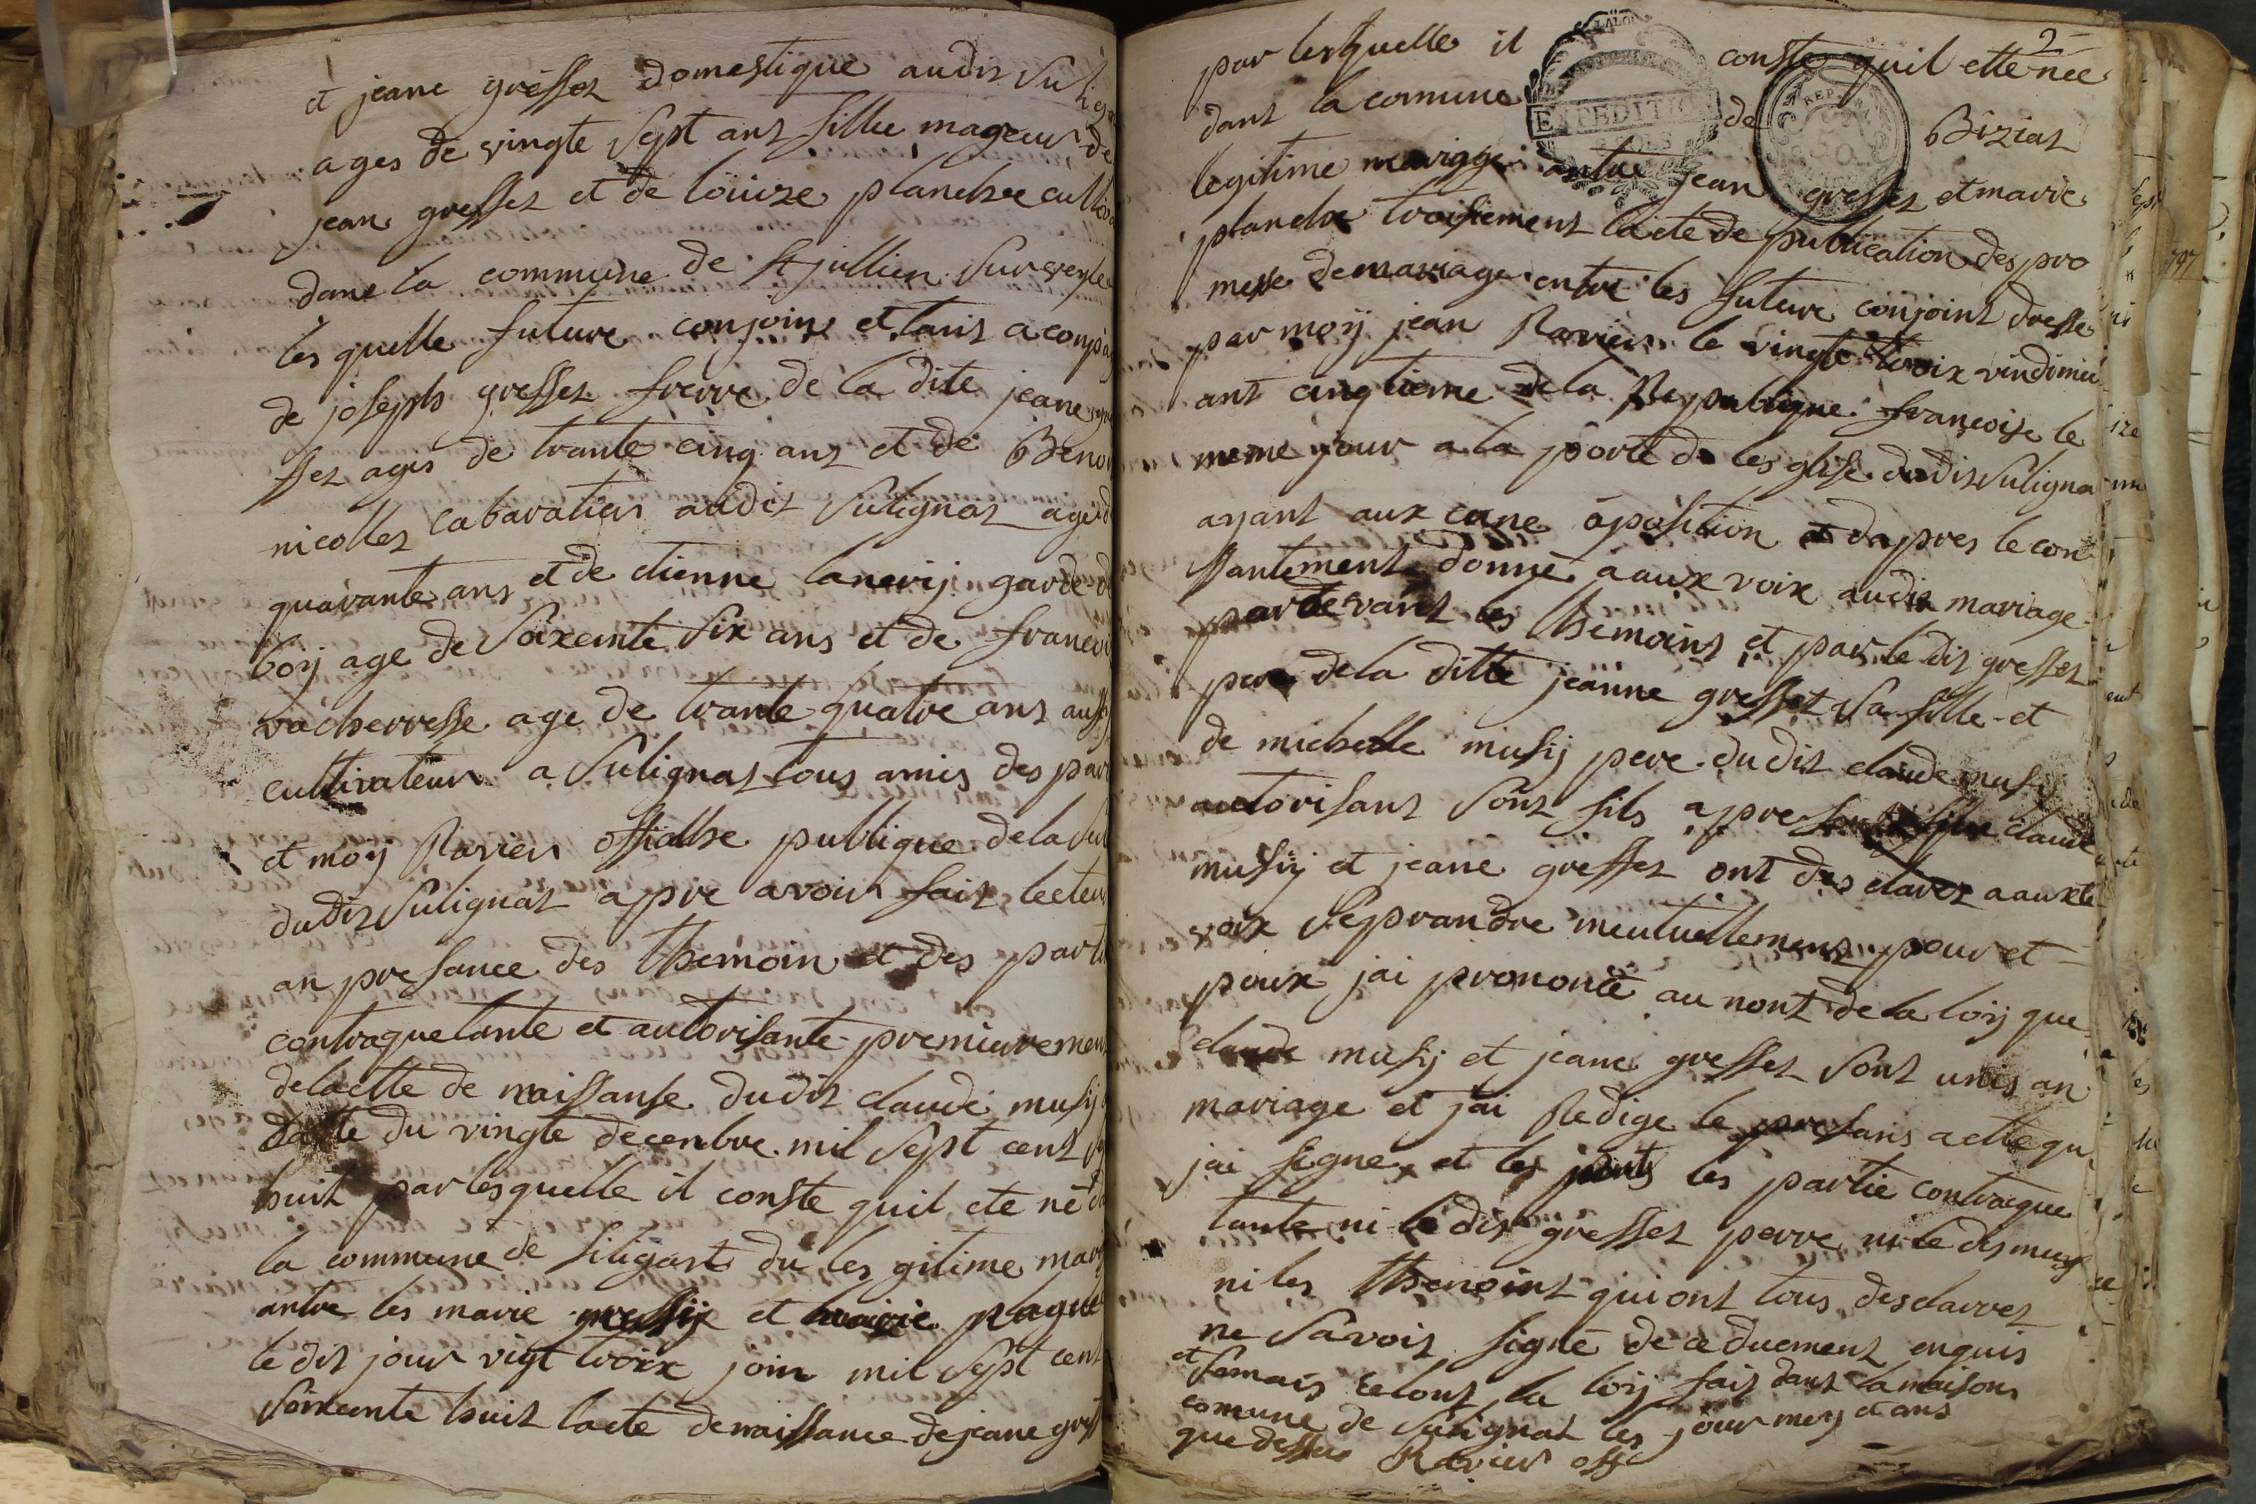 et jeane gresset domestique audit Sulig
ages de vingte Sept ant fillie mageur de
jean gresset et de louize planche culti
dans la commune de St jullien Sur veyle
les quelle future conjoins et tanis aconpa
de josepts gresset frerre de la dite jeane gre
sset ages de trante cinq ans et de Beno
nicollet cabaratier audit Sulignat age d
quarante ans et de etienne lanerij garde d
boij age de Soixente Six ans et de francoi
vacherresse age de trante quatre ans aussi
cultivateur a Sulignat tous amis des par
et moij Ravier offialse publique de la Su
dudit Sulignat apre avoir fait lecteur
an presance des themoin et des parti
contraquetante et autorisante premieremen
de laette de naissanse dudit claude musij
datte du vingte decenbre mil Sept cent S
huit par lesquelle il conste quil ete né da
la commune de Siligart du les gitime mar
antre les marie mussij et marie plagne
le dit jour vigt troix join mil Sept cent
Soixcente huit lacte de naissance de jeane gress
2
par lesquelle il conste quil ette nee
EXPEDITION
dant la comune de Biziat
legitime mariage antre jean gresset et marie
planche troisiement lacte de publication des pro
messe de mariage entre les future conjoint dresse
par moij jean Ravier le vingte troix vindimier
ant cinqtieme de la Republique françoise le
meme jour a la porte de les glise dudit Suligna
ayant aux cune oposition et dapres le con
ssantement donné a aux voix audit mariage
pardevant les themoins et par le dit gresset
pere de la ditte jeanne gresset Sa fille et
de michelle musij pere du dit claude musij
autorisant Sont fils apre claude
musij et jeane gresset ont des clarez a aux te
voix Seprandre meutuellement pour et
poux jai prononcé au nont de la loij que
claude musij et jeane gresset Sont unis an
mariage et jai Redige le presans actte qu
jai Signe et les les partie contraque
tante ni le dit gresset perre ni le dit musij
ni les themoint qui ont tous desclarret
ne Savoir Signé de ce duement enquis
et Semais Selont la loij fait dant la maisons
comune de Sulignat les jour moij et ans
que dessus Ravier offi